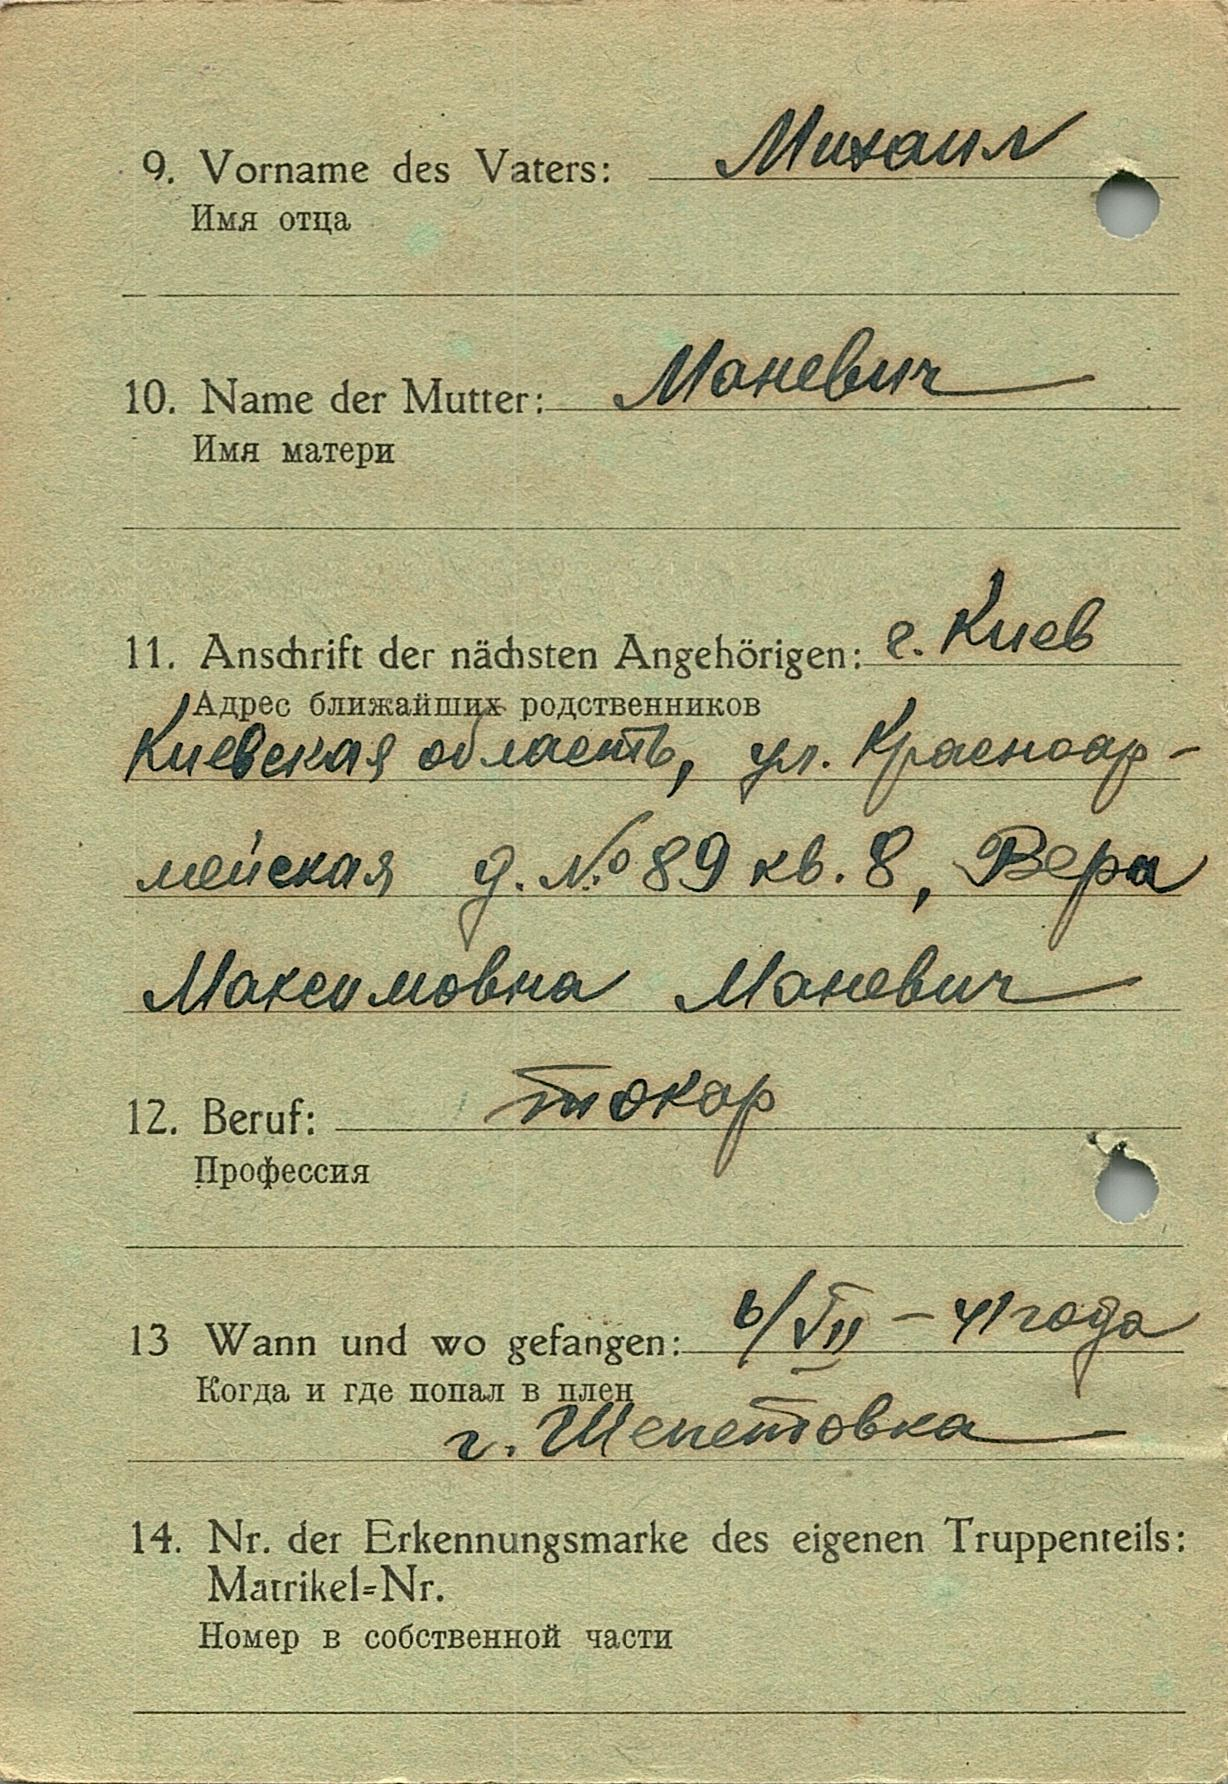 9. Vorname des Vaters: Михаил
Имя отца
10. Name der Mutter: Маневич
Имя матери
11. Anschrift der nächsten Angehörigen: г. Киев
Адрес ближайших родственников
Киевская область, ул. Красноар-
мейская д. № 89 кв. 8, Вера
Максимовна Маневич
12. Beruf: токар
Профессия
13 Wann und wo gefangen: 6/VII – 41 года
Когда и где попал в плен
г. Шепетовка
14. Nr. der Erkennungsmarke des eigenen Truppenteils:
Matrikel=Nr.
Номер в собственной части